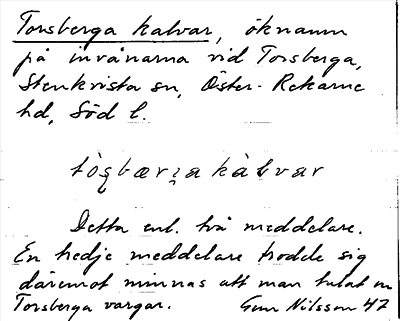 Torsberga kalvar, öknamn
på invånarna vid Torsberga,
Stenkvista sn, Öster-Rekarne
hd, Söd l.
Detta enl. två meddelare.
En tredje meddelare trodde sig
däremot minnas att man talat om
Torsberga vargar. Gun Nilsson 47